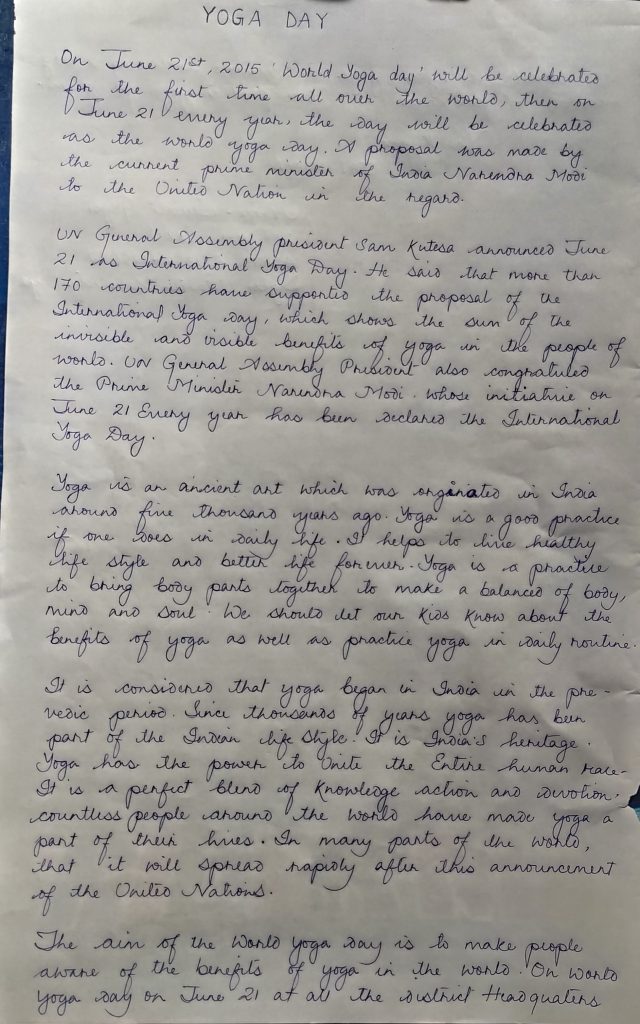 YOGA DAY
On June 21st, 2015 'World Yoga day' will be celebrated
for the first time all over the world, then on
June 21 every year, the day will be celebrated
as the world yoga day. A proposal was made by
the current prime minister of India Narendra Modi
to the United Nation in the regard.
UN General Assembly president Sam Kutesa announced June
21 as International Yoga Day. He said that more than
170 countries have supported the proposal of the
International Yoga day, which shows the sum of the
invisible and visible benefits of yoga in the people of
world. UN General Assembly President also congratuled
the Prime Minister Narendra Modi. whose initiative on
June 21 Every year has been declared the International
Yoga Day.
Yoga is an ancient art which was orginated in India
around five thousand years ago. Yoga is a good practice
if one does in daily life. It helps to live healthy
life style and better life forever. Yoga is a practice
to bring body parts together to make a balanced of body,
mind and soul. We should let our kids know about the
benefits of yoga as well as practice yoga in daily routine.
It is considered that yoga began in India in the pre-
vedic period. Since thousands of years yoga has been
part of the Indian life style. It is India's heritage.
Yoga has the power to Unite the Entire human race.
It is a perfect blend of knowledge action and devotion.
countless people around the world have made yoga a
part of their lives. In many parts of the world,
that it will spread rapidly after this announcement
of the United Nations.
The aim of the World yoga day is to make people
aware of the benefits of yoga in the world. On World
Yoga day on June 21 at all the district Headquaters